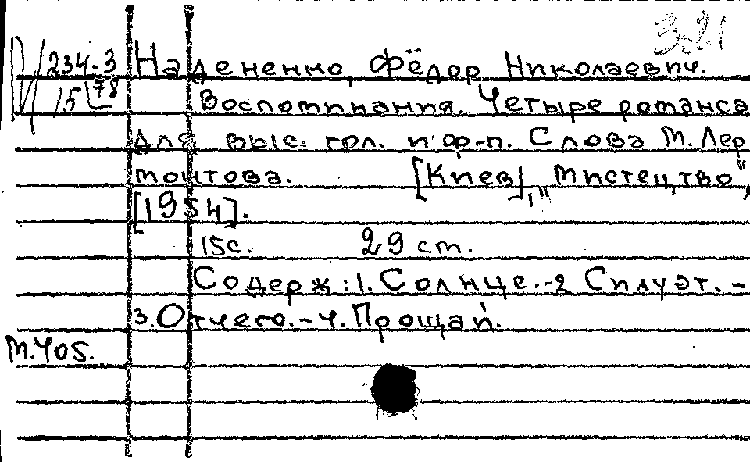 3-21
234-3 Надененко, Фёдор Николаевич.
15 78 Воспоминания. Четыре романса
для выс. гол. и ф-п. Слова М. Лер
монтова. [Киев], "Мистецтво",
[1954].
15с. 29 см.
Содерж: 1. Солнце.-2 Силуэт. -
3. Отчего.-4. Прощай.
М.405.